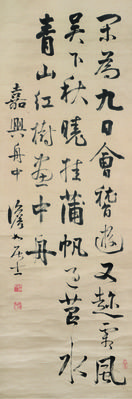 為九日會稽遊又趁霜風
吳下秋曉挂蒲帆過苕水
青山紅樹畫中舟
嘉興舟中